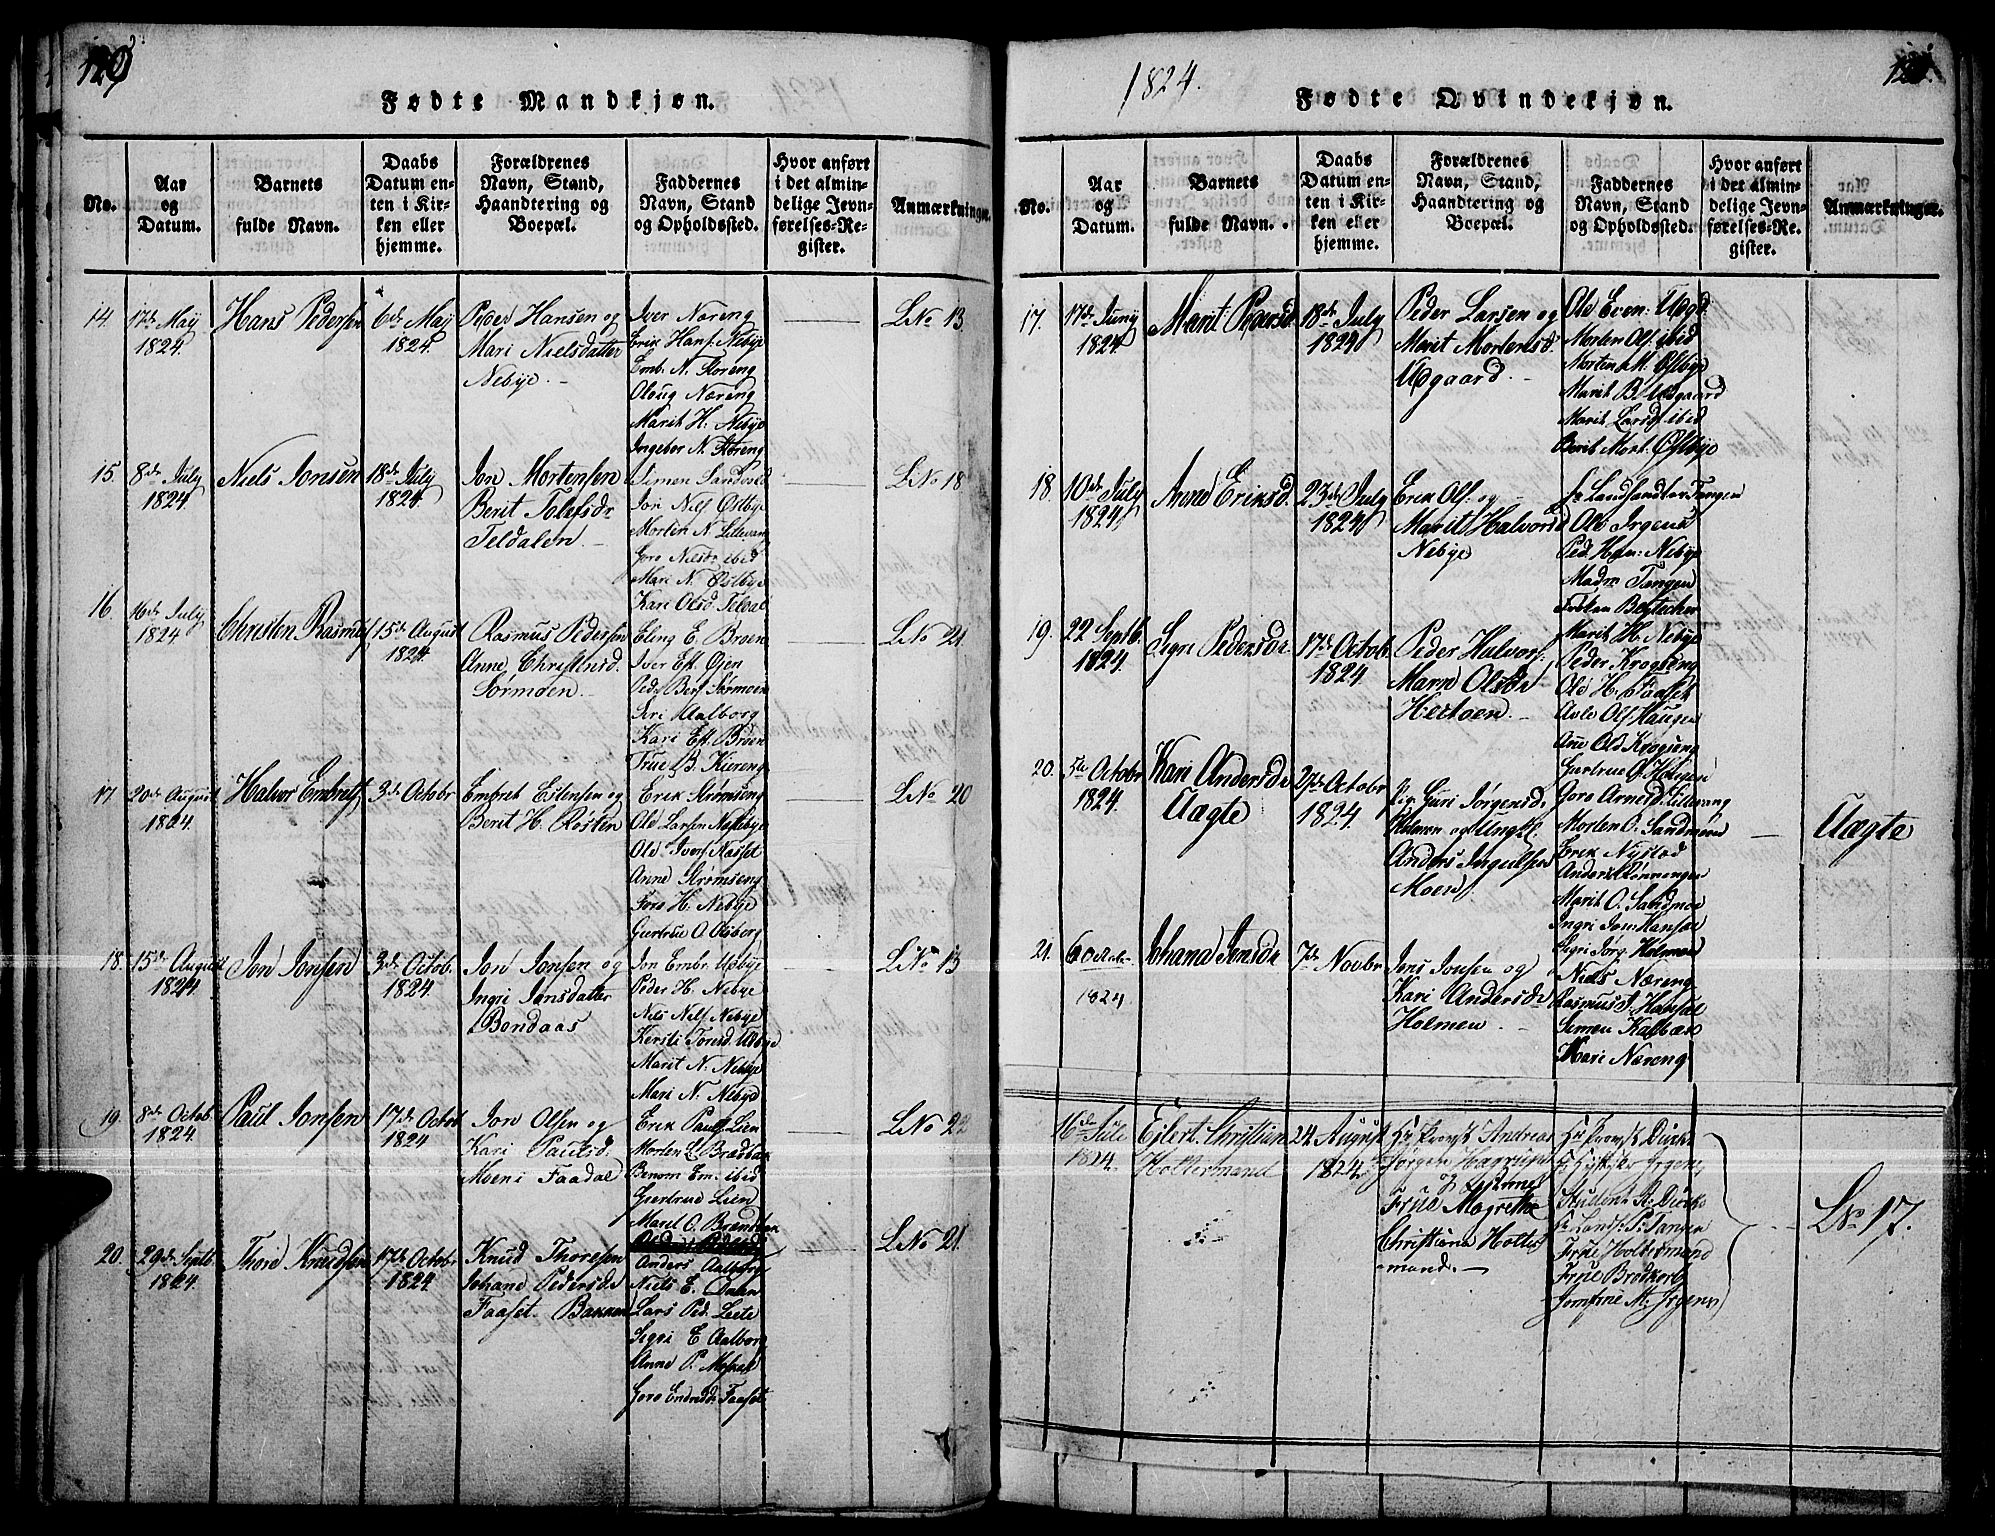 129
Fødte Mandkjøn.
No.
Aar
og
Datum.
Barnets
fulde Navn.
Daabs
Datum en-
ten i Kir-
ken eller
hjemme.
Forældrenes
Navn, Stand,
Haandtering og
Boepæl.
Faddernes
Navn, Stand
og Opholdssted.
Hvor anført
i det almin-
delige Jevn-
førelses-Re-
gister.
Anmærkninger.
14.
17de May
1824.
Hans Pedersen
6te May
1824.
Peder Hansen og
Mari Nielsdatter
Nebye.
Iver Næreng
Erik Hans. Nebye
Emb. N. Floreng
Oloug Næreng
Marit H. Nebye
Ingebor N. Floreng
L No 13.
15.
8de July
1824.
Niels Jonsen
18de July
1824.
Jon Mortensen
Berit Tolefsdr
Teldalen
Simen Sandvold
Jon Nils. Østbye
Morten N. Lillevang
Goro Nilsdr ibid
Mari N. Østbye
Kari Olsd. Teldal
L No 18
16
16de July
1824
Christen Rasmus.
15de August
1824.
Rasmus Pedersen
Anne Christensd.
Sørmoen
Eling E. Broen
Iver Est. Øien
Ped. Bers. Sørmoen
Siri Aalborg
Kari Est. Broen
True B. Kiereng
L No 21.
17
20de August
1824.
Halvor Embrets.
3de Octobr
Embret Estensen og
Berit H. Rosten
Erik Strømseng
Ole Larsen Nebye
Ole Ivers. Nasset
Anne Strømseng
Goro H. Nebye
Giertrue O. Aasberg
L No 20
18.
15de August
1824.
Jon Jonsen
3de Octob.
1824.
Jon Jonsen og
Ingri Jonsdatter
Bondaas
Jon Embr. Utbye
Peder H. Nebye
Nils Nils. Nebye
Kersti Toresd. Utbye
Marit N. Nebye
Mari N. Nebye
L No 13
19.
8de Octob.
1824.
Paul Jonsen
17de Octob
1824
Jon Olsen og
Kari Paulsd.
Moen i Faadal
Erik Pauls. Lien
Morten E. Brædbak
Benom Em. ibid
Giertrue Lien
Marel O. Brændbak
L No 22
20.
29de Septb.
1824.
Thore Knudsen
17de Octobr
1824
Knud Thoresen
Johane Pedersdr
Faaset. Bakken
Anders Aalborg
Niels E. Dalen
Lars Ped. Leete
Sigri E. Aalborg
Anne P. Moskal
Goro Endredr Faaset
L No 21.
1824.
Fødte Qvindekjøn.
No.
Aar
og
Datum.
Barnets
fulde Navn.
Daabs
Datum en-
ten i Kir-
ken eller
hjemme.
Forældrenes
Navn, Stand,
Haandtering og
Boepæl.
Faddernes
Navn, Stand
og Opholdssted.
Hvor anført
i det almin-
delige Jevn-
førelses-Re-
gister.
Anmærkninger.
17.
17de Juny
1824.
Marit Pedersd.
18de July
1824
Peder Larsen og
Marit Mortensd.
Utgaard.
Ole Even: Utgd
Morten Ols. ibid
Morten M. Østbye
Marit B. Utgaard
Marit Larsd. ibid
Berit Mort. Østbye
18
10de July
1824
Anne Eriksd.
23de July
1824
Erik Ols. og
Marit Halvorsd
Nebye
Hr Landhandler Tangen
Ole Irgens
Ped. Han: Nebye
Madm Tangen
Marit H. Nebye
19.
22 Septb.
1824.
Sigri Pedersdr
17de Octobr
1824
Peder Halvors.
Maren Olsdr
Hertoen
Peder Krogseng
Ole H. Faaset
Avle Ols. Haugen
Ane Ols. Krogseng
Giertrue O. Holmen
20.
5te Octobr
1824.
Kari Andersdr
Uægte
27de Octobr
1824.
Pige Guri Jørgensdr
Holmen og Ungkl.
Anders Ingulfsen
Moen
Goro Arnesd. Lillevang
Morten O. Sandmoen
Erik Nystad
Anders Rønningen
Marit O. Sandmoe
Ingri Jon: Hansæ
Sigri Jørg: Holmen
Uægte
21.
6 Octobr
1824
Johane Jensdr
7de Novbr
Jens Jonsen og
Kari Andersdr
Holmen
Niels Næreng
Rasmus J. Hansæ
Simen Kalbæk
Kari Næreng
16de Julie
1824.
Eilert Christian
Holtermand
24 August
1824
Hr Provst Andreas
Jørgen Hagrup
Frue Magrethe
Christiana Holter-
mand.
Hr Provst Dircks
Hr Irgens
Student R. Dircks
Hr Landh. P. Tangen
Frue Holtermand
Frue Brodkorb
Jomfrue M. Irgens
L No 17.